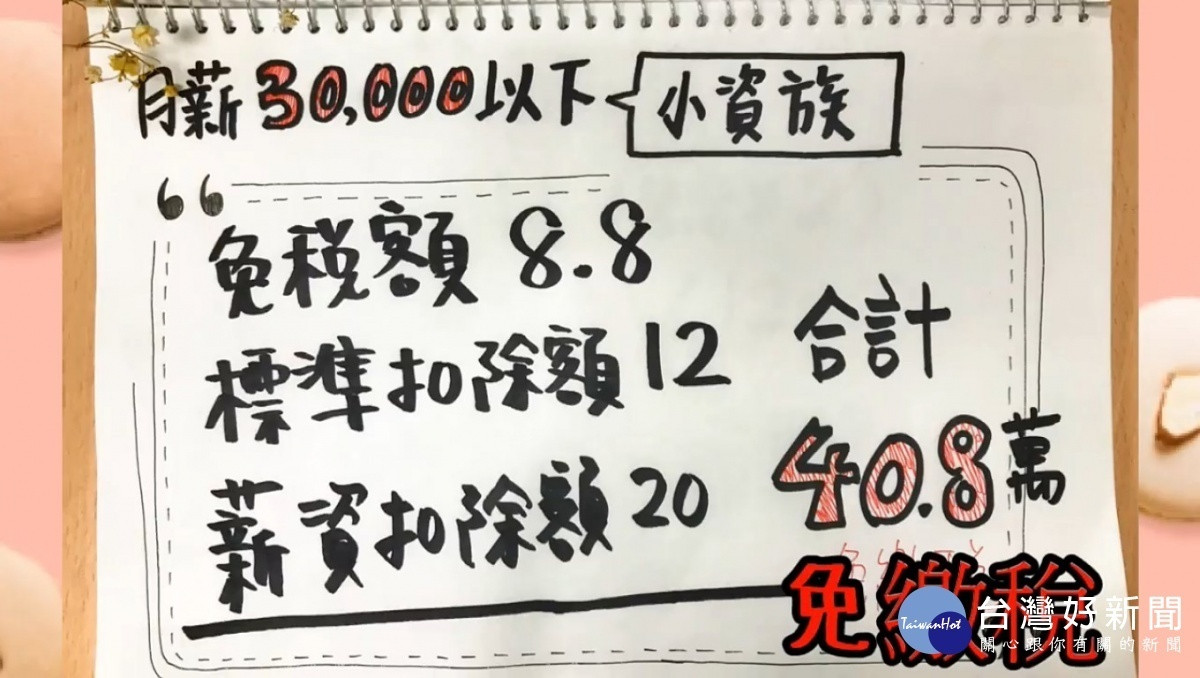 月薪30,000以下 小資族
免税額 8.8
標準扣除額 12
薪資扣除額 20
合計
40.8萬
免繳稅
TaiwanHot
台灣好新聞
關心跟你有關的新聞